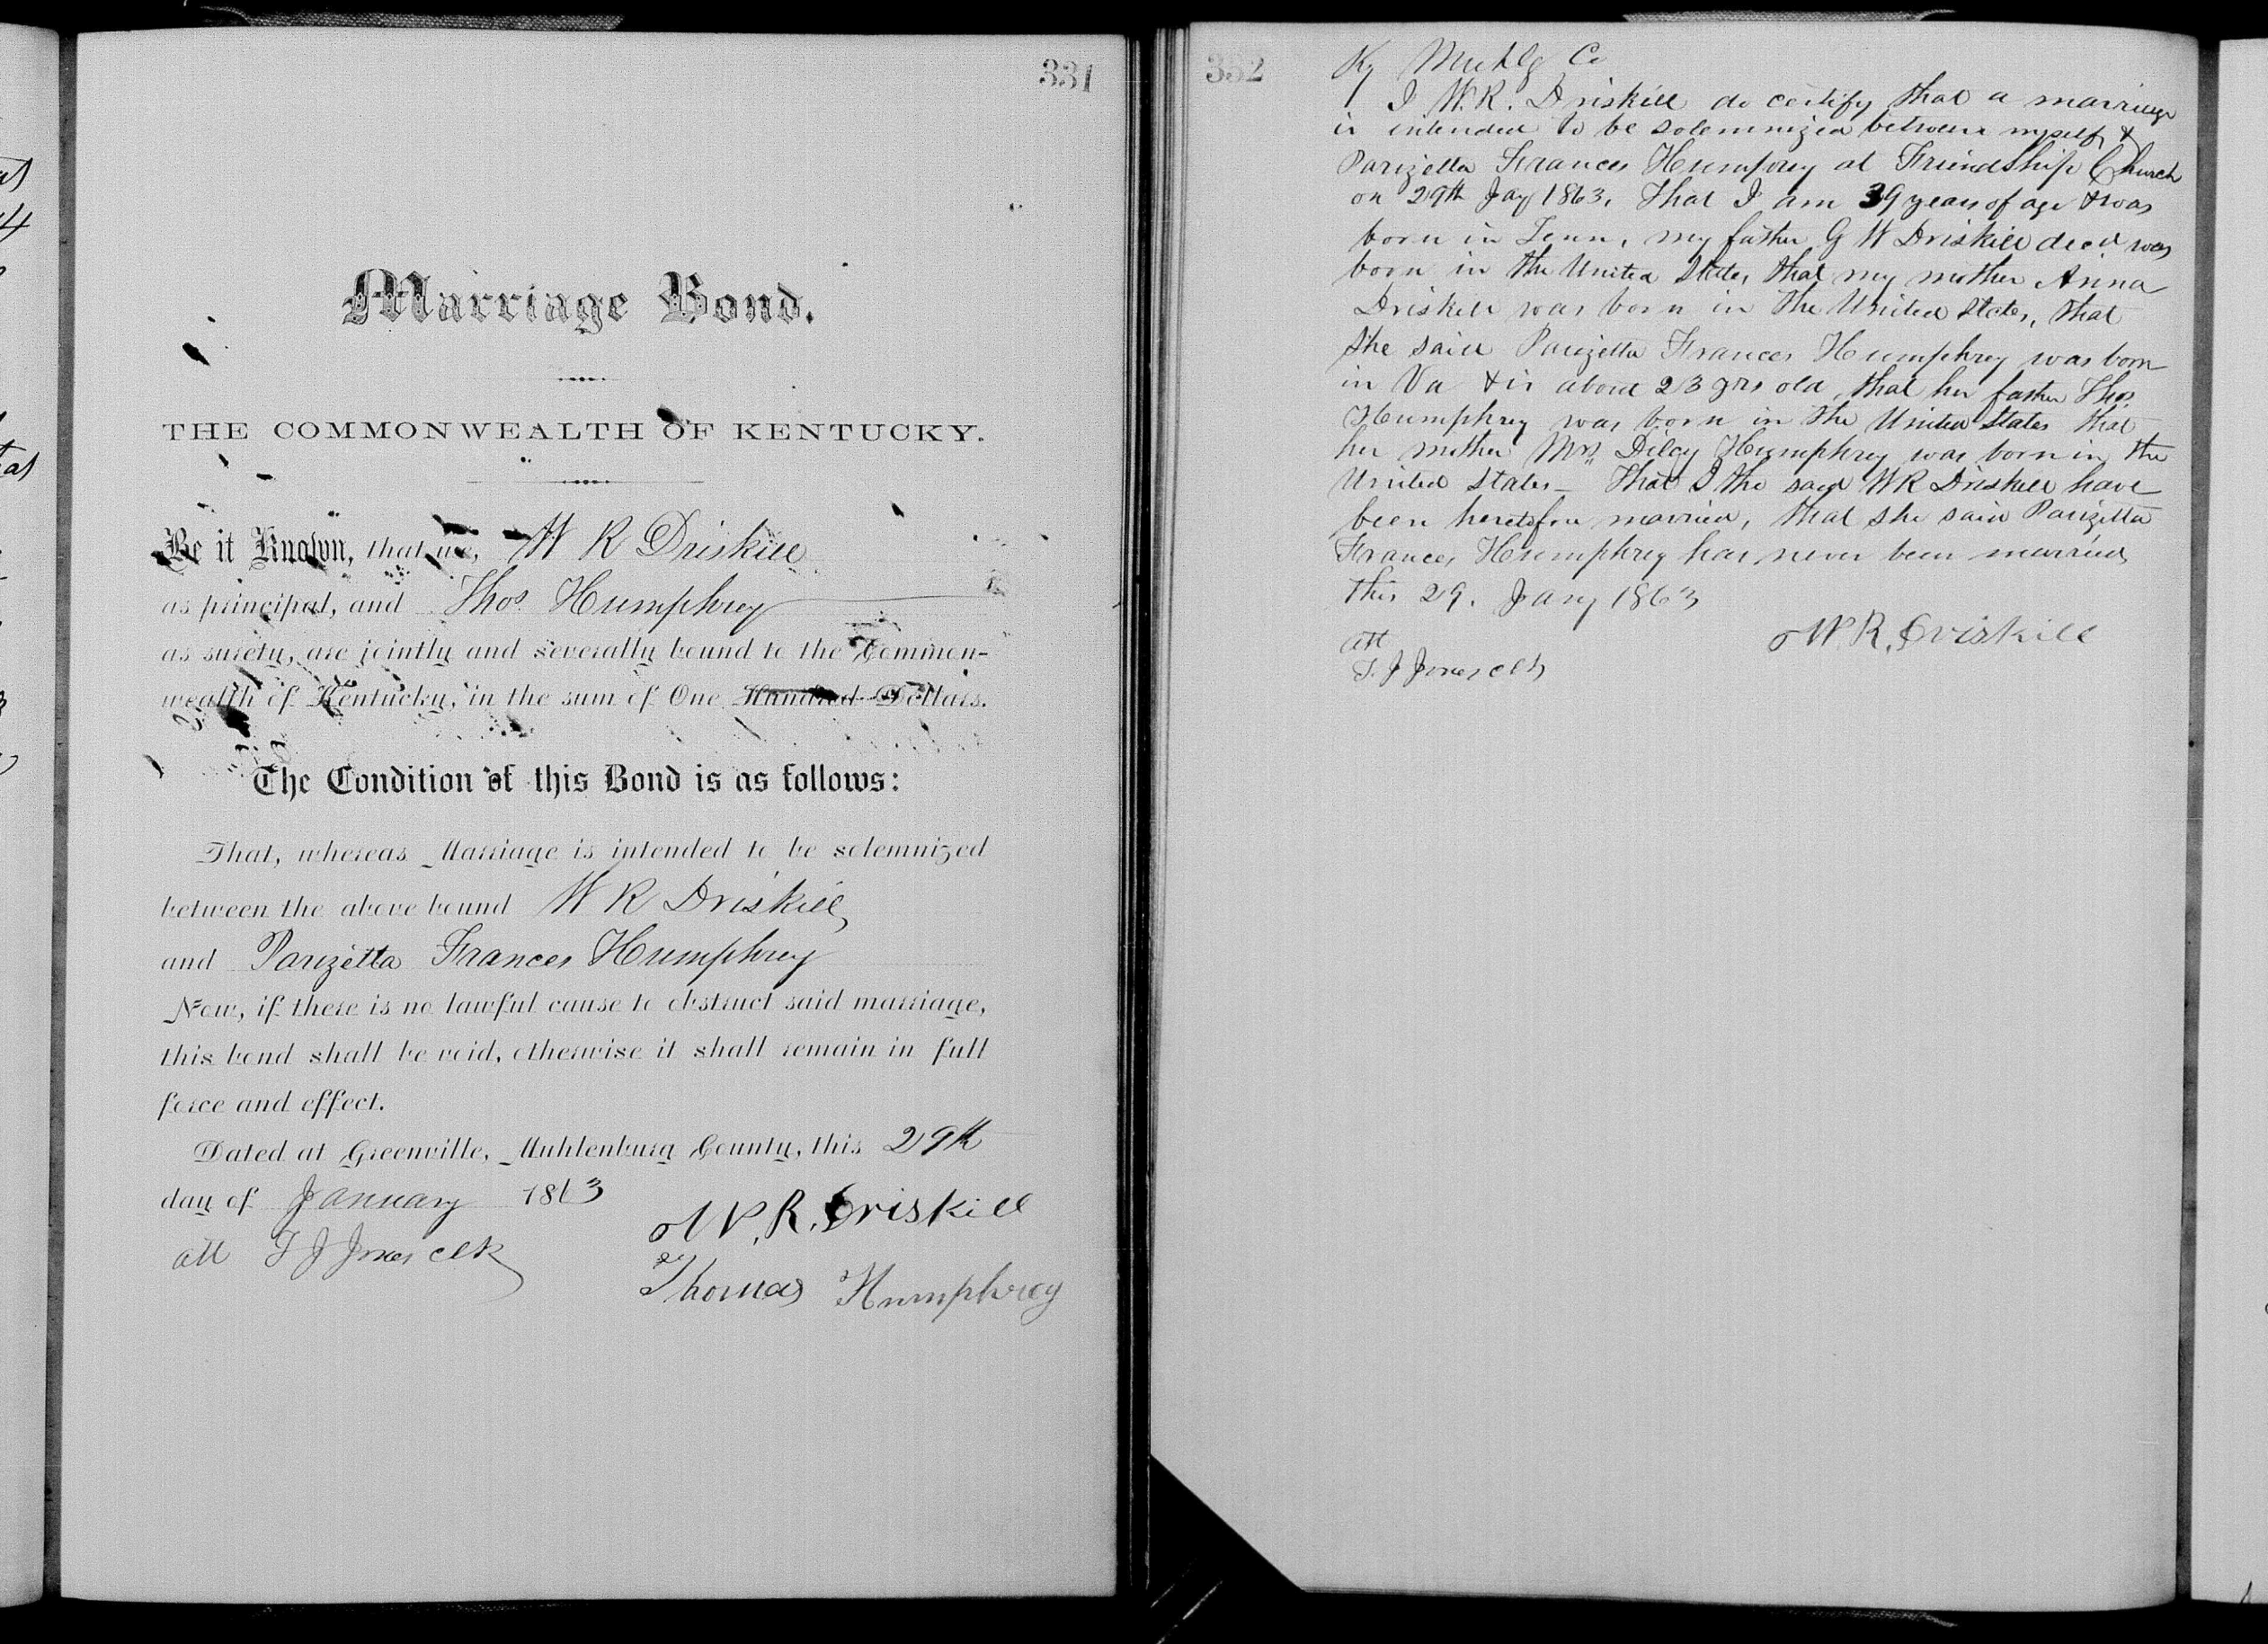 331
Marriage Bond.
THE COMMONWEALTH OF KENTUCKY.
Be it Known, that we, W R Driskill
as principal, and Thos. Humphrey
as surety, are jointly and severally bound to the Common-
wealth of Kentucky, in the sum of One Hundred Dollars.
The Condition of this Bond is as follows:
That, whereas Marriage is intended to be solemnized
between the above bound W R Driskill
and Parizetta Frances Humphrey
Now, if there is no lawful cause to obstruct said marriage,
this bond shall be void, otherwise it shall remain in full
force and effect.
Dated at Greenville, Muhlenburg County, this 29th
day of January 1863
W. R. Driskill
att T J Jones clk
Thomas Humphrey
332
Ky Muhlg Co
I W. R. Driskill do certify that a marriage
is intended to be solemnized between myself &
Parizetta Frances Humphrey at Friendship Church
on 29th Jay 1863, that I am 39 years of age & was
born in Tenn, my father G W Driskill decd was
born in the United States, that my mother Anna
Driskill was born in the United States, that
she said Parizetta Frances Humphrey was born
in Va & is about 23 yrs old, that her father Thos.
Humphrey was born in the United States that
her mother Mrs. Dilcy Humphrey was born in the
United States - That I the said W R Driskill have
been heretofore married, that she said Parizetta
Frances Humphrey has never been married
this 29. Jany 1863
W. R. Driskill
att
T. J Jones clk